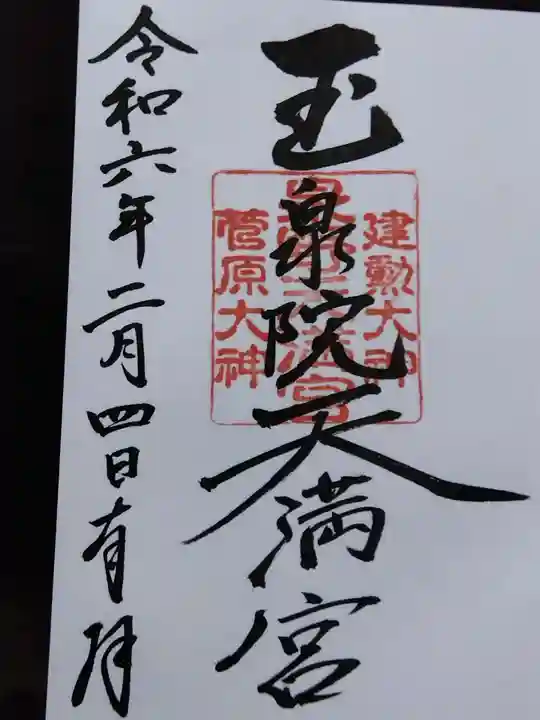 玉泉院天満宮
建勲大神
天満宮
菅原大神
令和六年二月四日有拜